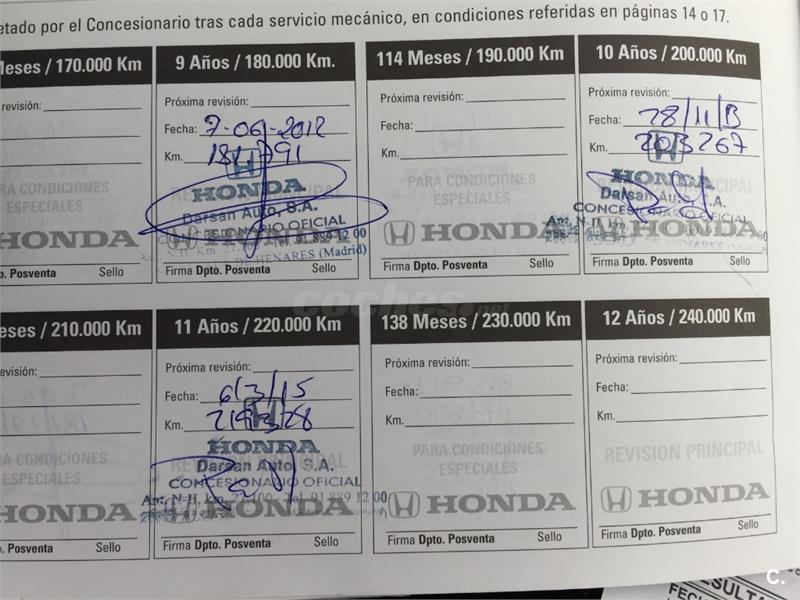 etado por el Concesionario tras cada servicio mecánico, en condiciones referidas en páginas 14 o 17.
Meses / 170.000 Km
revisión:
RA CONDICIONES
ESPECIALES
HONDA
o. Posventa Sello
9 Años / 180.000 Km.
Próxima revisión:
Fecha: 7-06-2012
Km. 181791
HONDA
Darsan Auto, S.A.
CONCESIONARIO OFICIAL
DE HENARES (Madrid)
Firma Dpto. Posventa Sello
114 Meses / 190.000 Km
Próxima revisión:
Fecha:
Km.
PARA CONDICIONES
ESPECIALES
HONDA
Firma Dpto. Posventa Sello
10 Años / 200.000 Km
Próxima revisión:
Fecha: 28/11/13
Km. 203267
HONDA
Darsan Auto, S.A.
CONCESIONARIO OFICIAL
HONDA
Firma Dpto. Posventa Sello
coches.net
eses / 210.000 Km
evisión:
A CONDICIONES
ESPECIALES
HONDA
o. Posventa Sello
11 Años / 220.000 Km
Próxima revisión:
Fecha: 6/3/15
Km. 219328
HONDA
Darsan Auto, S.A.
CONCESIONARIO OFICIAL
91 889 12 00
HONDA
Firma Dpto. Posventa Sello
138 Meses / 230.000 Km
Próxima revisión:
Fecha:
Km.
PARA CONDICIONES
ESPECIALES
HONDA
Firma Dpto. Posventa Sello
12 Años / 240.000 Km
Próxima revisión:
Fecha:
Km.
REVISION PRINCIPAL
HONDA
Firma Dpto. Posventa Sello
C.
ESULTA
FECH